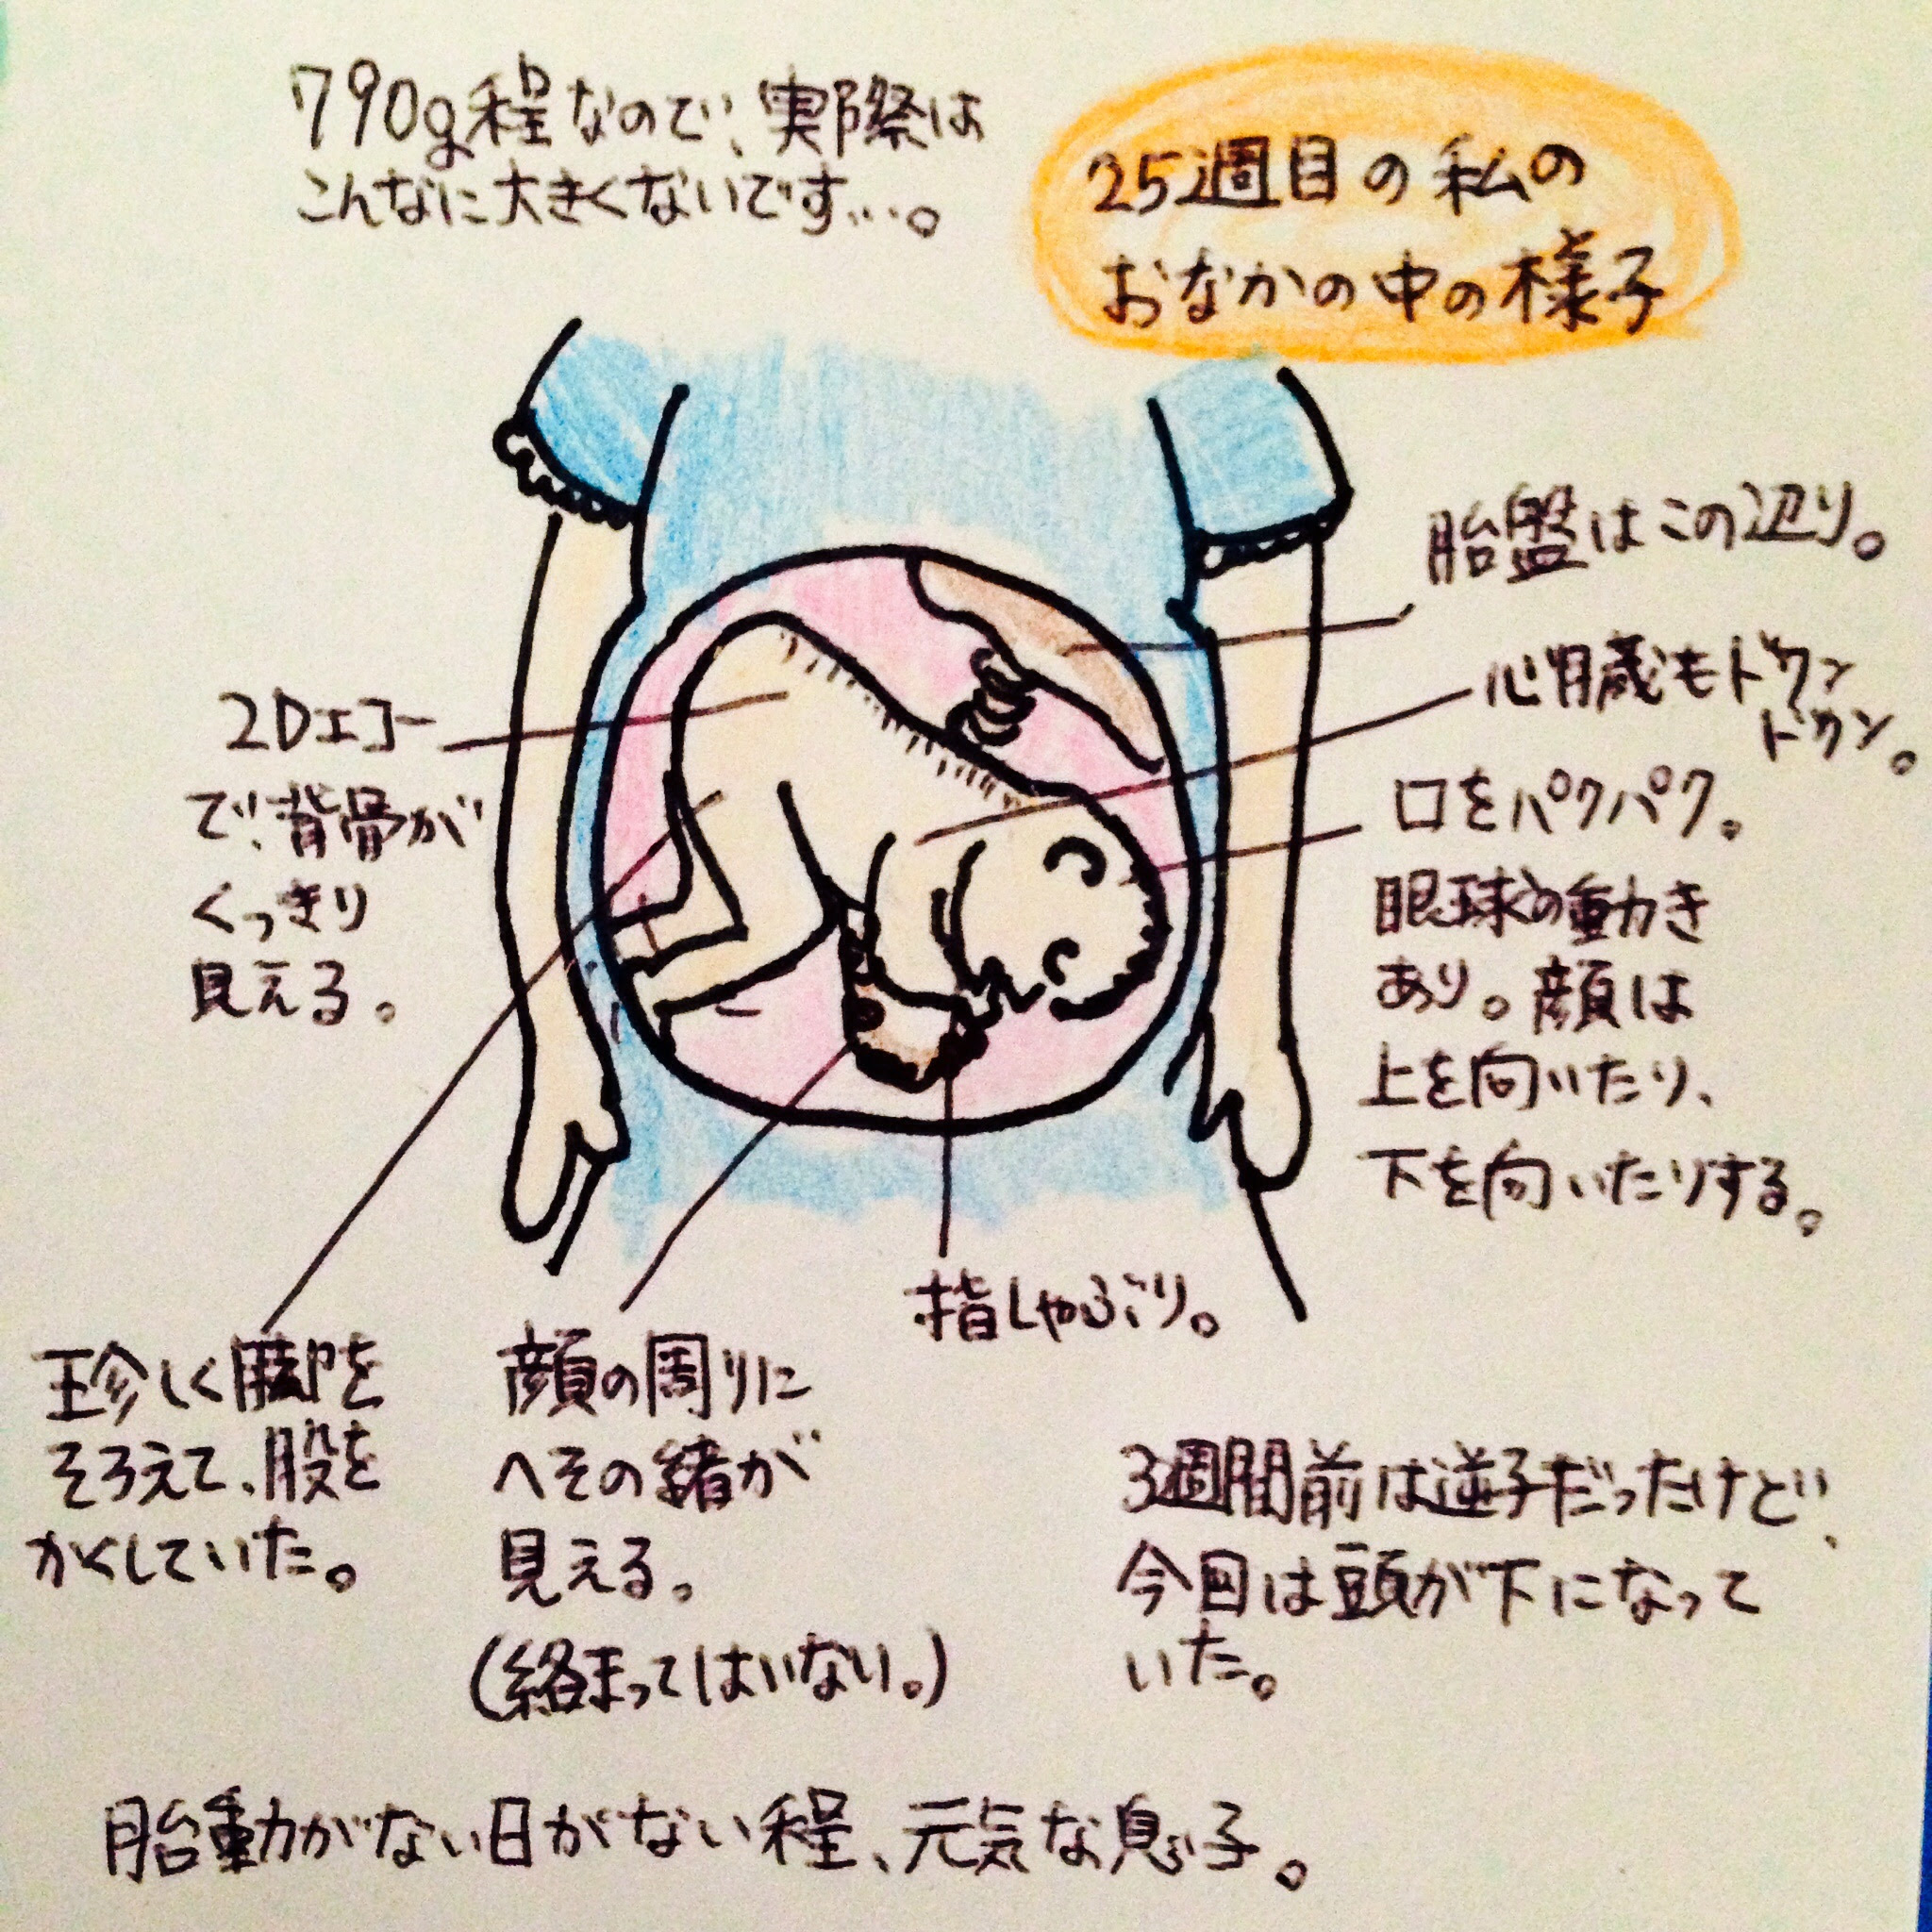 790g程なので、実際は
こんなに大きくないです…。
25週目の私の
おなかの中の様子
胎盤はこの辺り。
心臓もドクン
ドクン。
口をパクパク。
眼球の動き
あり。顔は
上を向いたり、
下を向いたりする。
2Dエコー
で、背骨が
くっきり
見える。
珍しく脚を
そろえて、股を
かくしていた。
顔の周りに
へその緒が
見える。
(絡まってはいない。)
指しゃぶり。
3週間前は逆子だったけど、
今回は頭が下になって
いた。
胎動がない日がない程、元気な息子。